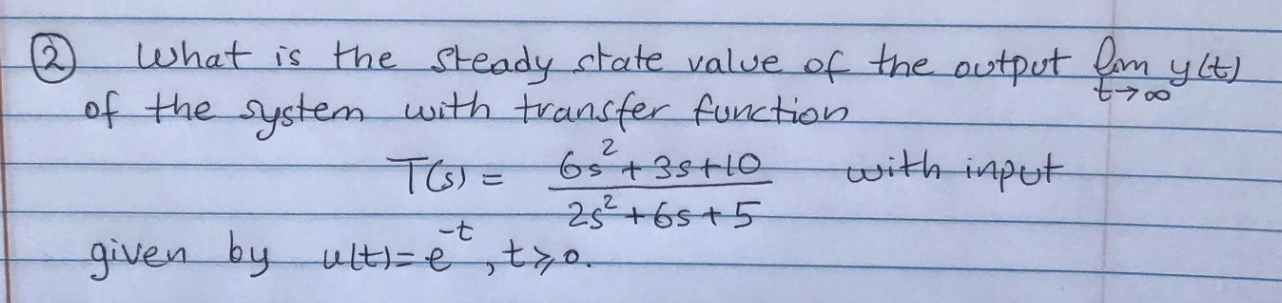 ② What is the steady state value of the output lim y(t)
t→∞
of the system with transfer function
T(s) = 6s²+3s+10 / 2s²+6s+5 with input
given by u(t)=e^-t, t≥0.